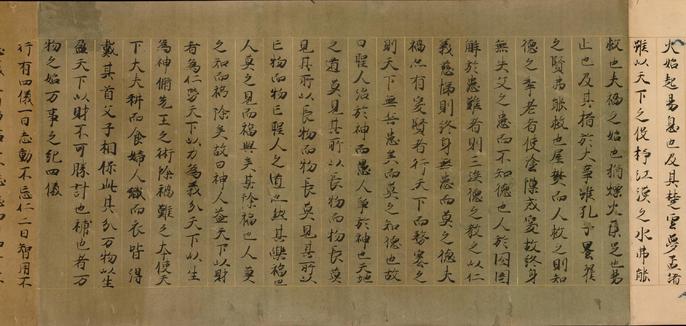 火始起易息也及其焚雲夢孟諸
雖以天下之役抒江漢之水弗能
救也夫禍之始也猶熛火蘖足也易
止也及其措於大事雖孔子墨翟
之賢弗能救也屋焚而人救之則知
德之年老者使塗隟戒突故終身
無失火之患而不知德也入於囹圄
解於患難者則三族德之教之以仁
義慈悌則終身無患而莫之德夫
禍亦有突賢者行天下而務塞之
則天下無兵患矣而莫之知德也故
曰聖人治於神而愚人爭於神也天地
之道莫見其所以長物而物長莫
見其所以長物而物長莫見其所以
亡物而物亡聖人之道亦然其興福也
人莫之見而福興矣其除禍也人莫
之知而禍除矣故曰神人益天下以財
者為仁勞天下以力為義分天下以生
為神脩先王之術除禍難之本使天
下丈夫耕而食婦人織而衣皆得
戴其首父子相保此其分万物以生
盈天下以財不可勝計也神也者万
物之始万事之紀四儀
行有四儀一曰志動不忘仁二曰智用不